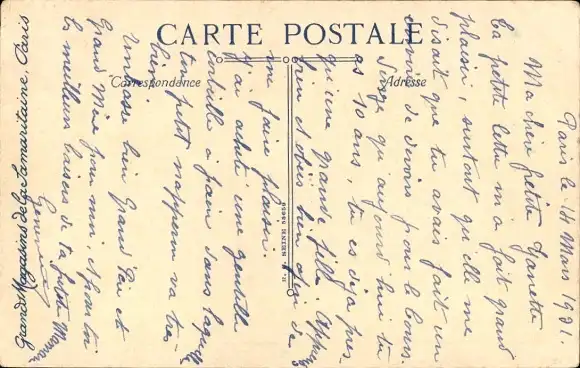 CARTE POSTALE
Correspondance
Adresse
Paris le Mars
Ma chère petite
Ta petite lettre m'a fait grand
plaisir, surtout qu'elle me
disait que tu avais fait un
devoir de pour le Cours.
Songe qu'aujourd'hui tu
as 10 ans, tu es déjà pres-
qu'une grande fille.
bien et obéis bien afin de
me faire plaisir.
J'ai acheté une gentille
corbeille à pain dans laquelle
ton petit napperon va très
bien.
Embrasse bien Grand Père et
Grand Mère pour moi, et pour toi
les meilleurs baisers de ta petite Maman
Grands Magasins de la Samaritaine, Paris